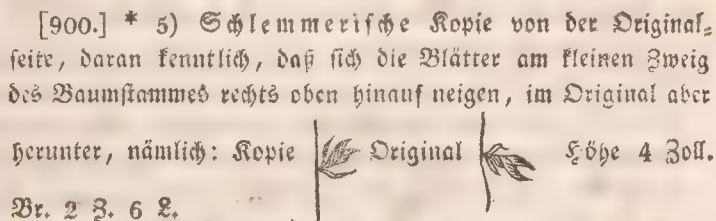 [900.] * 5) Schlemmerische Kopie von der Original-
seite, daran kenntlich, daß sich die Blätter am kleinen Zweig
des Baumstammes rechts oben hinauf neigen, im Original aber
herunter, nämlich: Kopie Original Höhe 4 Zoll.
Br. 2 Z. 6 L.